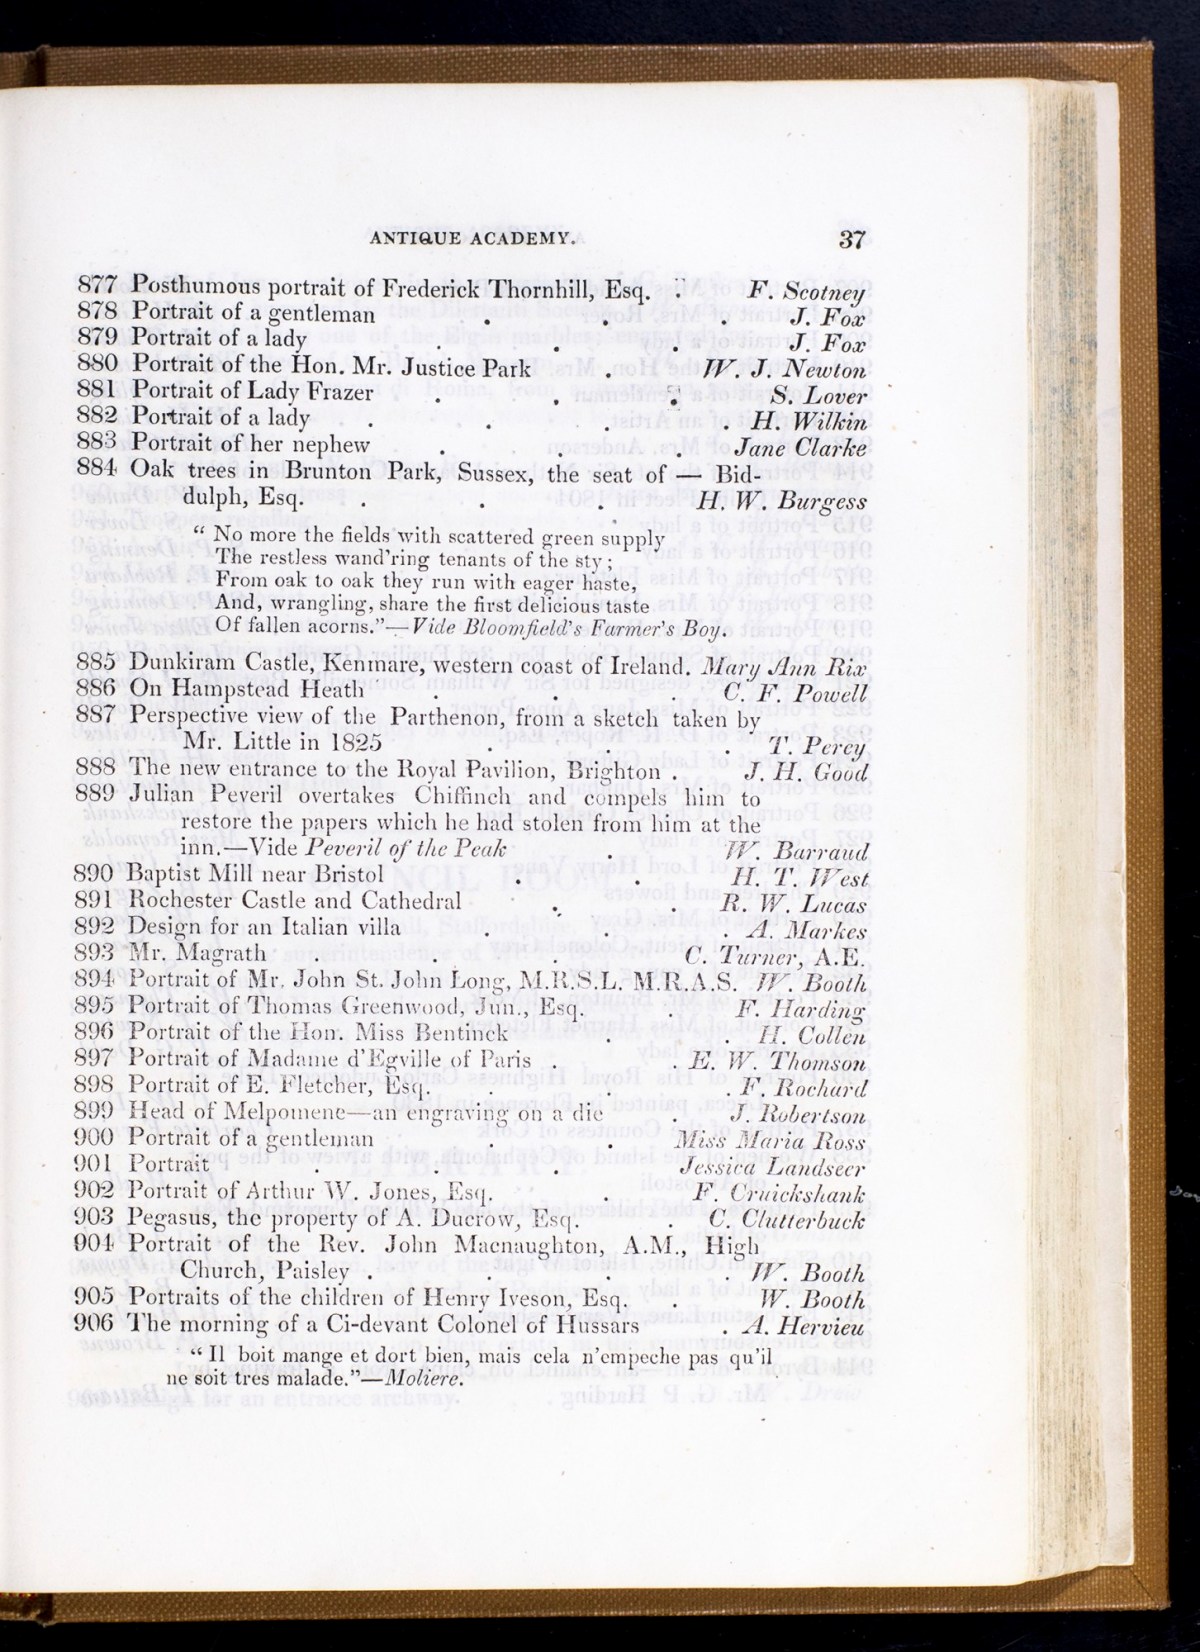 ANTIQUE ACADEMY. 37
877 Posthumous portrait of Frederick Thornhill, Esq. . F. Scotney
878 Portrait of a gentleman . . . J. Fox
879 Portrait of a lady . . . J. Fox
880 Portrait of the Hon. Mr. Justice Park . W. J. Newton
881 Portrait of Lady Frazer . . . S. Lover
882 Portrait of a lady . . . . H. Wilkin
883 Portrait of her nephew . . . Jane Clarke
884 Oak trees in Brunton Park, Sussex, the seat of — Bid-
dulph, Esq. . . . H. W. Burgess
“ No more the fields with scattered green supply
The restless wand'ring tenants of the sty ;
From oak to oak they run with eager haste,
And, wrangling, share the first delicious taste
Of fallen acorns.”—Vide Bloomfield's Farmer's Boy.
885 Dunkiram Castle, Kenmare, western coast of Ireland. Mary Ann Rix
886 On Hampstead Heath . . . C. F. Powell
887 Perspective view of the Parthenon, from a sketch taken by
Mr. Little in 1825 . . . T. Percy
888 The new entrance to the Royal Pavilion, Brighton . J. H. Good
889 Julian Peveril overtakes Chiffinch and compels him to
restore the papers which he had stolen from him at the
inn.—Vide Peveril of the Peak . W. Barraud
890 Baptist Mill near Bristol . . H. T. West
891 Rochester Castle and Cathedral . . R. W. Lucas
892 Design for an Italian villa . . . A. Markes
893 Mr. Magrath . . . C. Turner, A.E.
894 Portrait of Mr. John St. John Long, M.R.S.L. M.R.A.S. W. Booth
895 Portrait of Thomas Greenwood, Jun., Esq. . F. Harding
896 Portrait of the Hon. Miss Bentinck . . H. Collen
897 Portrait of Madame d'Egville of Paris . . E. W. Thomson
898 Portrait of E. Fletcher, Esq. . . F. Rochard
899 Head of Melpomene—an engraving on a die . J. Robertson
900 Portrait of a gentleman . . Miss Maria Ross
901 Portrait . . . Jessica Landseer
902 Portrait of Arthur W. Jones, Esq. . F. Cruickshank
903 Pegasus, the property of A. Ducrow, Esq. . C. Clutterbuck
904 Portrait of the Rev. John Macnaughton, A.M., High
Church, Paisley . . . . W. Booth
905 Portraits of the children of Henry Iveson, Esq. . W. Booth
906 The morning of a Ci-devant Colonel of Hussars . A. Hervieu
“ Il boit mange et dort bien, mais cela n'empeche pas qu'il
ne soit tres malade.”—Moliere.